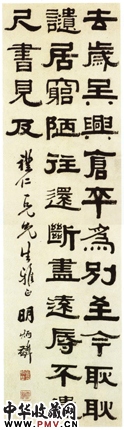 去歲吳興倉卒為別至今耿耿
譴居窮陋往還斷盡遠辱不遺
尺書見及
先生雅正 明炳麟
中华收藏网